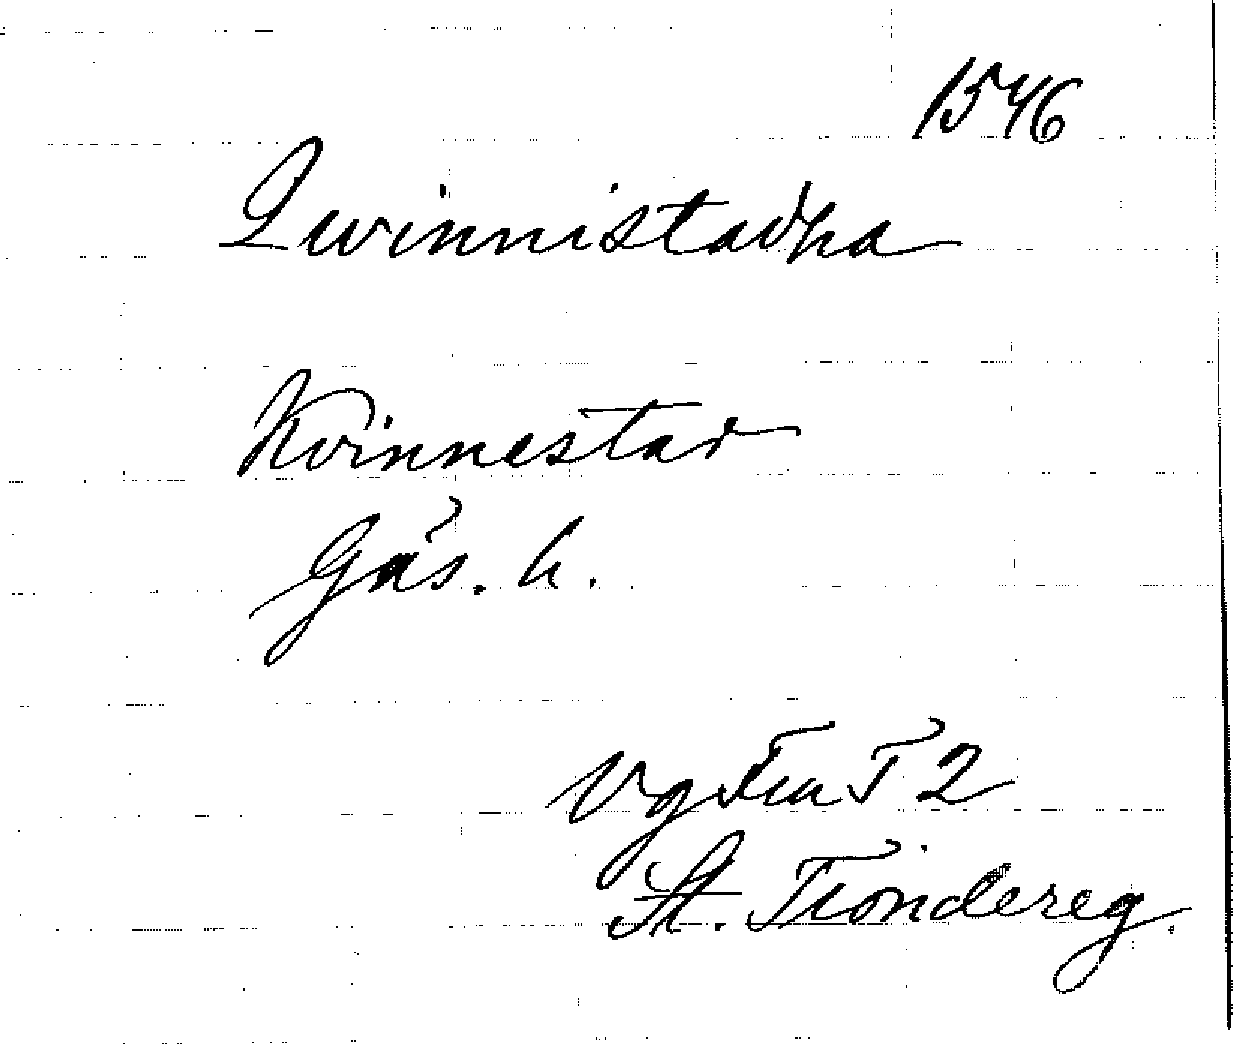 1546
Qwinnistadha
Kvinnestad
Gäs. h.
Vg Fra T 2
St. Tiondereg.